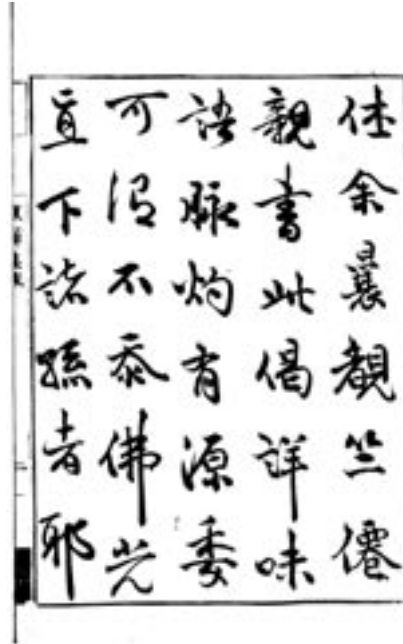 余曩觀竺僊
親書此偈詳味
語脉灼有源委
可謂不忝佛光
直下諸孫者耶